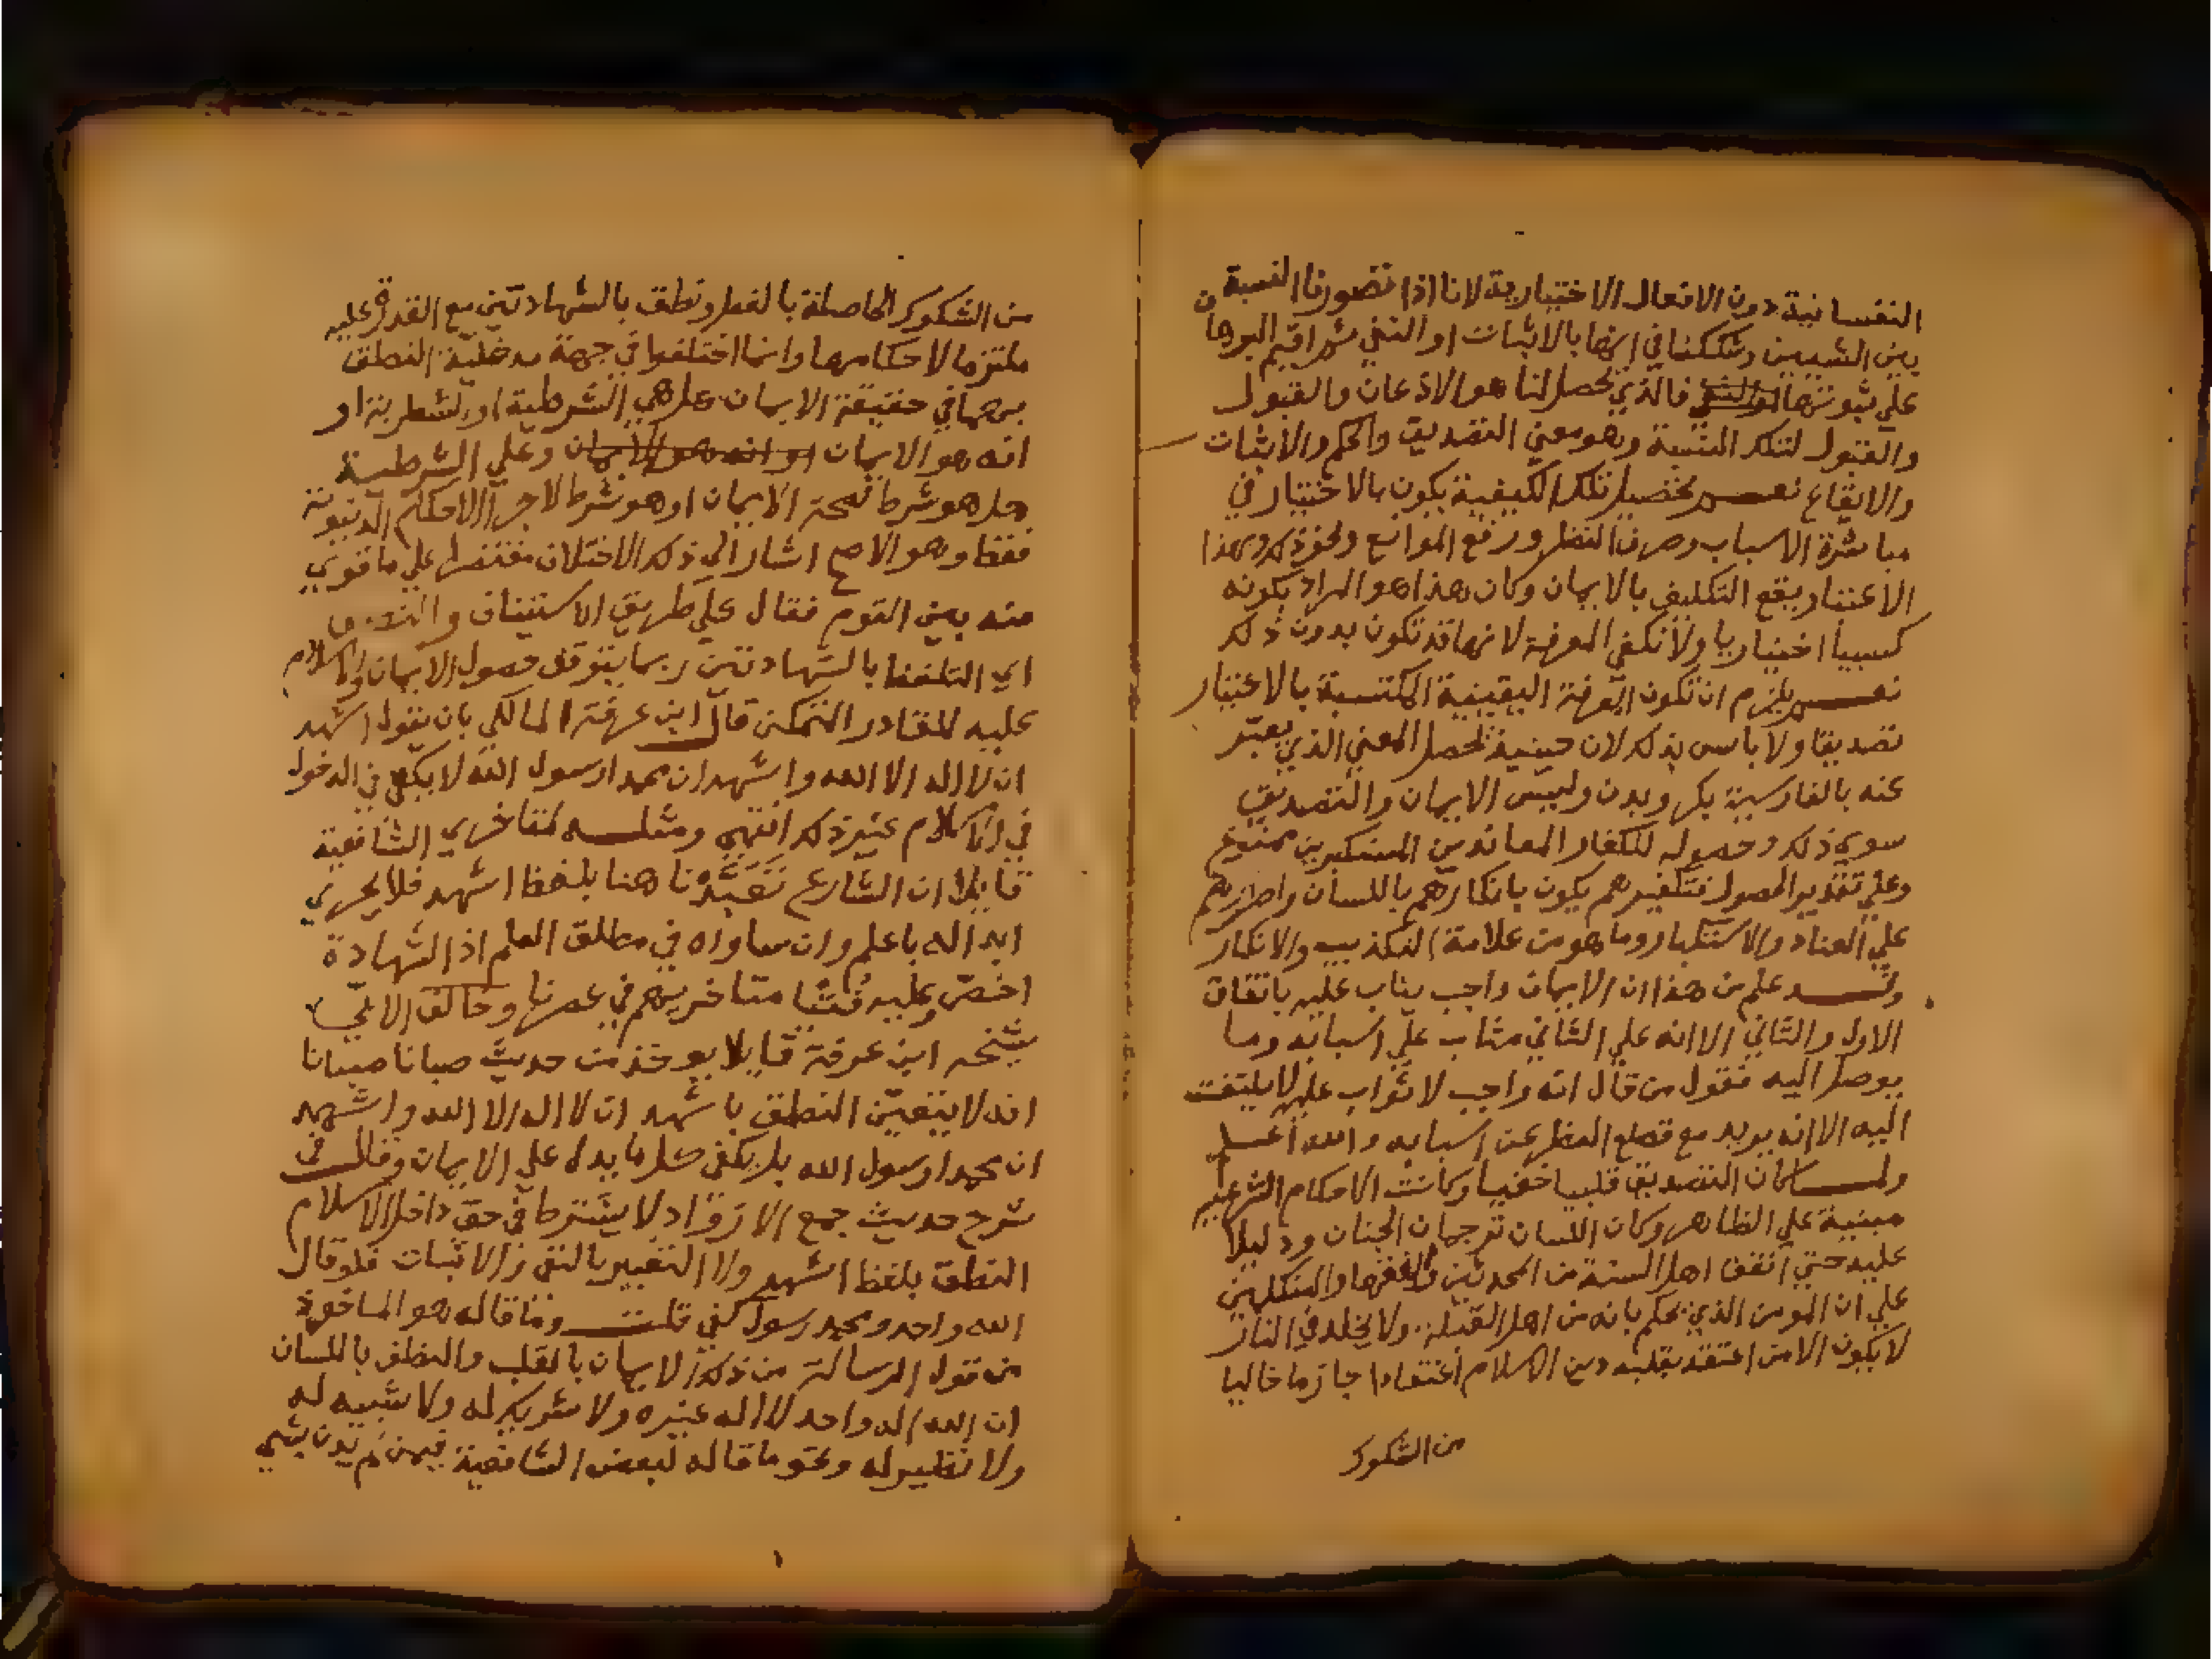 النفسانية دون الافعال الاختيارية لانا اذا تصورنا النسبة
بين الشيين وشككنا في انها بالاثبات او النفي ثم اقيم البرهان
علي ثبوتها فالذي يحصل لنا هو الاذعان والقبول
والقبول لتلك النسبة وهو معني التصديق والحكم والاثبات
والايقاع نعم تحصيل تلك الكيفية يكون بالاختيار في
مباشرة الاسباب وصرف النظر ورفع الموانع ونحو ذلك وبهذا
الاعتبار يقع التكليف بالايمان وكان هذا هو المراد بكونه
كسبيا اختياريا ولا تكفي المعرفة لانها قد تكون بدون ذلك
نعم يلزم ان تكون المعرفة اليقينية المكتسبة بالاختيار
تصديقا ولا باس بذلك لان حينية يحصل المعني الذي يعبّر
عنه بالفارسية بكرويدن وليس الايمان والتصديق
سوي ذلك وحصوله للكفار المعاندين المستكبرين ممنوع
وعلي تقدير الحصول فتكفيرهم يكون بانكارهم باللسان واصرارهم
علي العناد والاستكبار وما هو من علامة التكذيب والانكار
وقد علم من هذا ان الايمان واجب يثاب عليه باتفاق
الاول والثاني الا انه علي الثاني مثاب علي اسبابه وما
يوصل اليه فقول من قال انه واجب لا ثواب عليه لا يلتفت
اليه الا انه يريد مع قطع النظر عن اسبابه والله اعلم
ولما كان التصديق قلبيا خفيا وكانت الاحكام الشرعية
مبنية علي الظاهر وكان اللسان ترجمان الجنان ودليلا
عليه حتي اتفق اهل السنة من المحدثين والفقها والمتكلمين
علي ان المومن الذي يحكم بانه من اهل القبلة ولا يخلد في النار
لا يكون الا من اعتقد بقلبه دين الاسلام اعتقادا جازما خاليا
من الشكوك
من الشكوك الحاصلة بالفعل ونطق بالشهادتين مع القدرة عليه
ملتزما لاحكامها وانما اختلفوا في جهة مدخلية النطق
بهما في حقيقة الايمان هل هي الشرطية او الشطرية او
انه هو الايمان او انه هو الايمان وعلي الشرطية
هل هو شرط لصحة الايمان او هو شرط لاجرا الاحكام الدنيوية
فقط وهو الاصح اشار الي ذلك الاختلاف مقتصرا علي ما قوي
منه بين القوم فقال علي طريق الاستيناف و
اي التلفظ بالشهادتين ربما يتوقف حصول الايمان والاسلام
عليه للقادر المتمكن قال ابن عرفة المالكي بان يقول اشهد
ان لا اله الا الله واشهد ان محمدا رسول الله لا يكفي في الدخول
في الاسلام غير ذلك انتهي ومثله لمتاخري الشافعية
قايلا ان الشارع تَعَبَّدنا هنا بلفظ اشهد فلا يجزي
ابداله باعلم وان ساواه في مطلق العلم اذ الشهادة
اخصّ وعليه متاخريهم في عصرنا وخالف الابّي
شيخه ابن عرفة قايلا يوخذ من حديث صبانا صبانا
انه لا يتعيّن النطق باشهد ان لا اله الا الله واشهد
ان محمدا رسول الله بل يكفي كل ما يدل علي الايمان وقال في
شرح حديث جمع الازواد لا يشترط في حق داخل الاسلام
النطق بلفظ اشهد ولا التعبير بالنفي والاثبات فلو قال
الله واحد ومحمد رسول كفي قلت وما قاله هو الماخوذ
من قول الرسالة من ذلك الايمان بالقلب والنطق باللسان
ان الله اله واحد لا اله غيره ولا شريك له ولا شبيه له
ولا نظير له ونحو ما قاله لبعض الشافعية فيمن لم يدن بشي